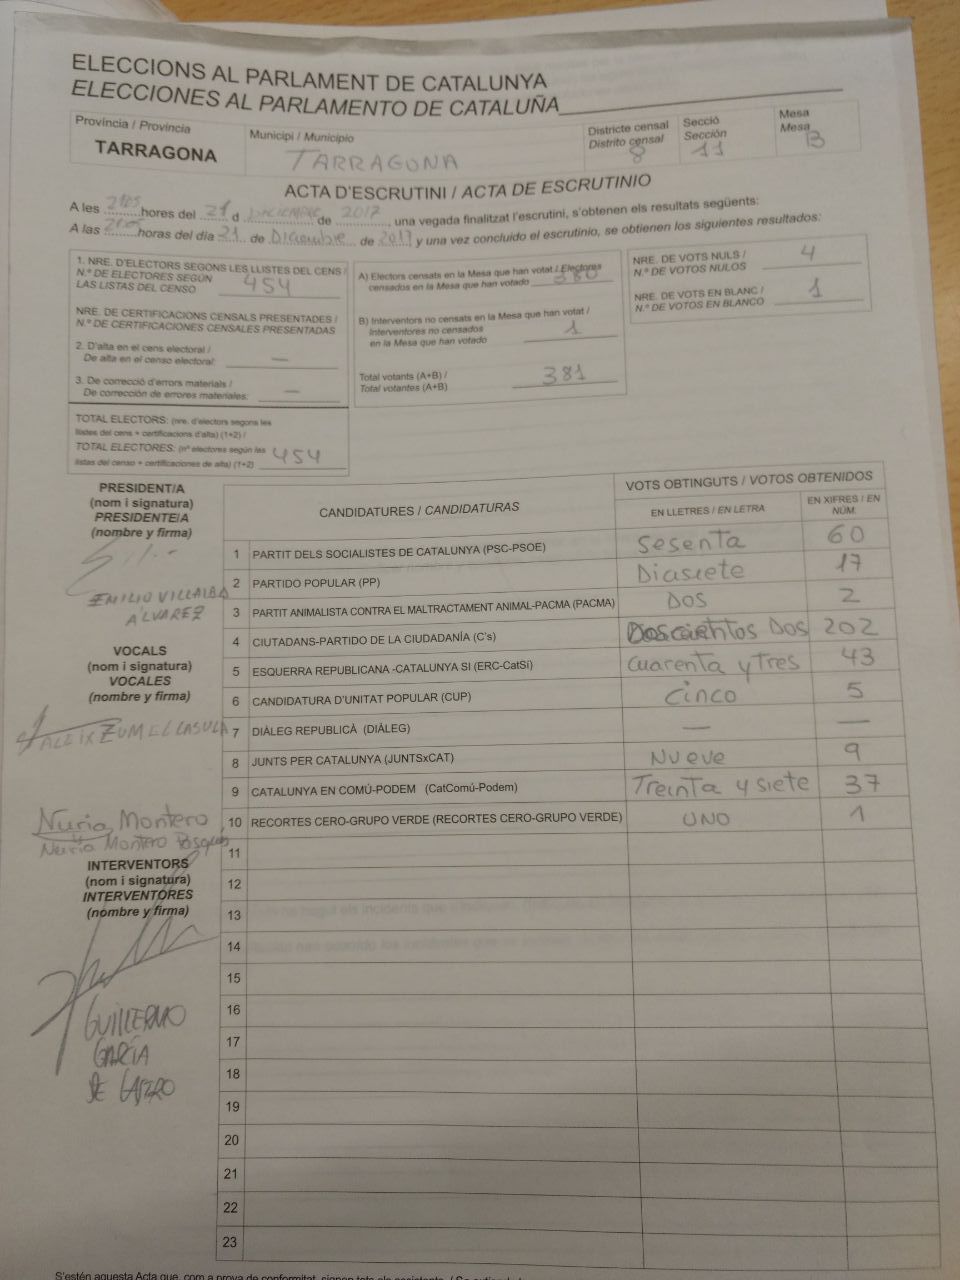 ELECCIONS AL PARLAMENT DE CATALUNYA
ELECCIONES AL PARLAMENTO DE CATALUÑA
Província / Provincia
TARRAGONA
Municipi / Municipio
TARRAGONA
Districte censal
Distrito censal
8
Secció
Sección
11
Mesa
Mesa
B
ACTA D'ESCRUTINI / ACTA DE ESCRUTINIO
A les hores del 21 d DICIEMBRE de 2017 una vegada finalitzat l'escrutini, s'obtenen els resultats següents:
A las horas del día 21 de Diciembre de 2017 y una vez concluido el escrutinio, se obtienen los siguientes resultados:
1. NRE. D'ELECTORS SEGONS LES LLISTES DEL CENS /
N.º DE ELECTORES SEGÚN
LAS LISTAS DEL CENSO 454
NRE. DE CERTIFICACIONS CENSALS PRESENTADES /
N.º DE CERTIFICACIONES CENSALES PRESENTADAS
2. D'alta en el cens electoral /
De alta en el censo electoral: —
3. De correcció d'errors materials /
De corrección de errores materiales: —
TOTAL ELECTORS: (nre. d'electors segons les
llistes del cens + certificacions d'alta) (1+2) /
TOTAL ELECTORES: (nº electores según las
listas del censo + certificaciones de alta) (1+2) 454
A) Electors censats en la Mesa que han votat / Electores
censados en la Mesa que han votado 380
B) Interventors no censats en la Mesa que han votat /
Interventores no censados
en la Mesa que han votado 1
Total votants (A+B) /
Total votantes (A+B) 381
NRE. DE VOTS NULS /
N.º DE VOTOS NULOS 4
NRE. DE VOTS EN BLANC /
N.º DE VOTOS EN BLANCO 1
PRESIDENT/A
(nom i signatura)
PRESIDENTE/A
(nombre y firma)
EMILIO VILLALBA
ÁLVAREZ
VOCALS
(nom i signatura)
VOCALES
(nombre y firma)
Nuria Montero
Nuria Montero
INTERVENTORS
(nom i signatura)
INTERVENTORES
(nombre y firma)
GUILLERMO
GARCÍA
DE CASTRO
CANDIDATURES / CANDIDATURAS
VOTS OBTINGUTS / VOTOS OBTENIDOS
EN LLETRES / EN LETRA
EN XIFRES / EN
NÚM.
1 PARTIT DELS SOCIALISTES DE CATALUNYA (PSC-PSOE) Sesenta 60
2 PARTIDO POPULAR (PP) Diasiete 17
3 PARTIT ANIMALISTA CONTRA EL MALTRACTAMENT ANIMAL-PACMA (PACMA) DOS 2
4 CIUTADANS-PARTIDO DE LA CIUDADANÍA (C's) Doscientos Dos 202
5 ESQUERRA REPUBLICANA -CATALUNYA SI (ERC-CatSí) Cuarenta y Tres 43
6 CANDIDATURA D'UNITAT POPULAR (CUP) Cinco 5
7 DIÀLEG REPUBLICÀ (DIÀLEG) — —
8 JUNTS PER CATALUNYA (JUNTSxCAT) Nueve 9
9 CATALUNYA EN COMÚ-PODEM (CatComú-Podem) Treinta y siete 37
10 RECORTES CERO-GRUPO VERDE (RECORTES CERO-GRUPO VERDE) UNO 1
11
12
13
14
15
16
17
18
19
20
21
22
23
S'estén aquesta Acta que, com a prova de conformitat, signen tots els assistents. /